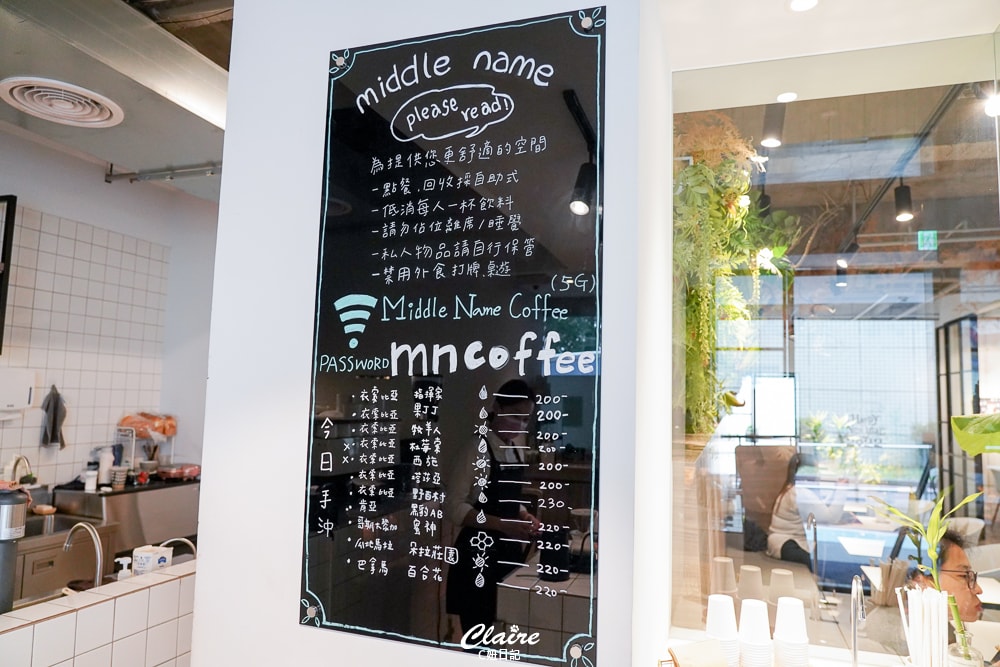 middle name
please read!
為提供您更舒適的空間
-點餐.回收採自助式
-低消每人一杯飲料
-請勿佔位離席/睡覺
-私人物品請自行保管
-禁用外食.打牌.桌遊
(5G)
Middle Name Coffee
PASSWORD mncoffee
今日手沖
衣索比亞 指揮家 200-
衣索比亞 果丁丁 200-
衣索比亞 牧羊人 200-
衣索比亞 私莓索 200-
衣索比亞 西施 200-
衣索比亞 塔莎亞 200-
衣索比亞 野西村 230
肯亞 黑豹AB 220-
哥斯大黎加 蜜神 220-
瓜地馬拉 朵拉莊園 220-
巴拿馬 百合花 220-
Claire
C姐日記